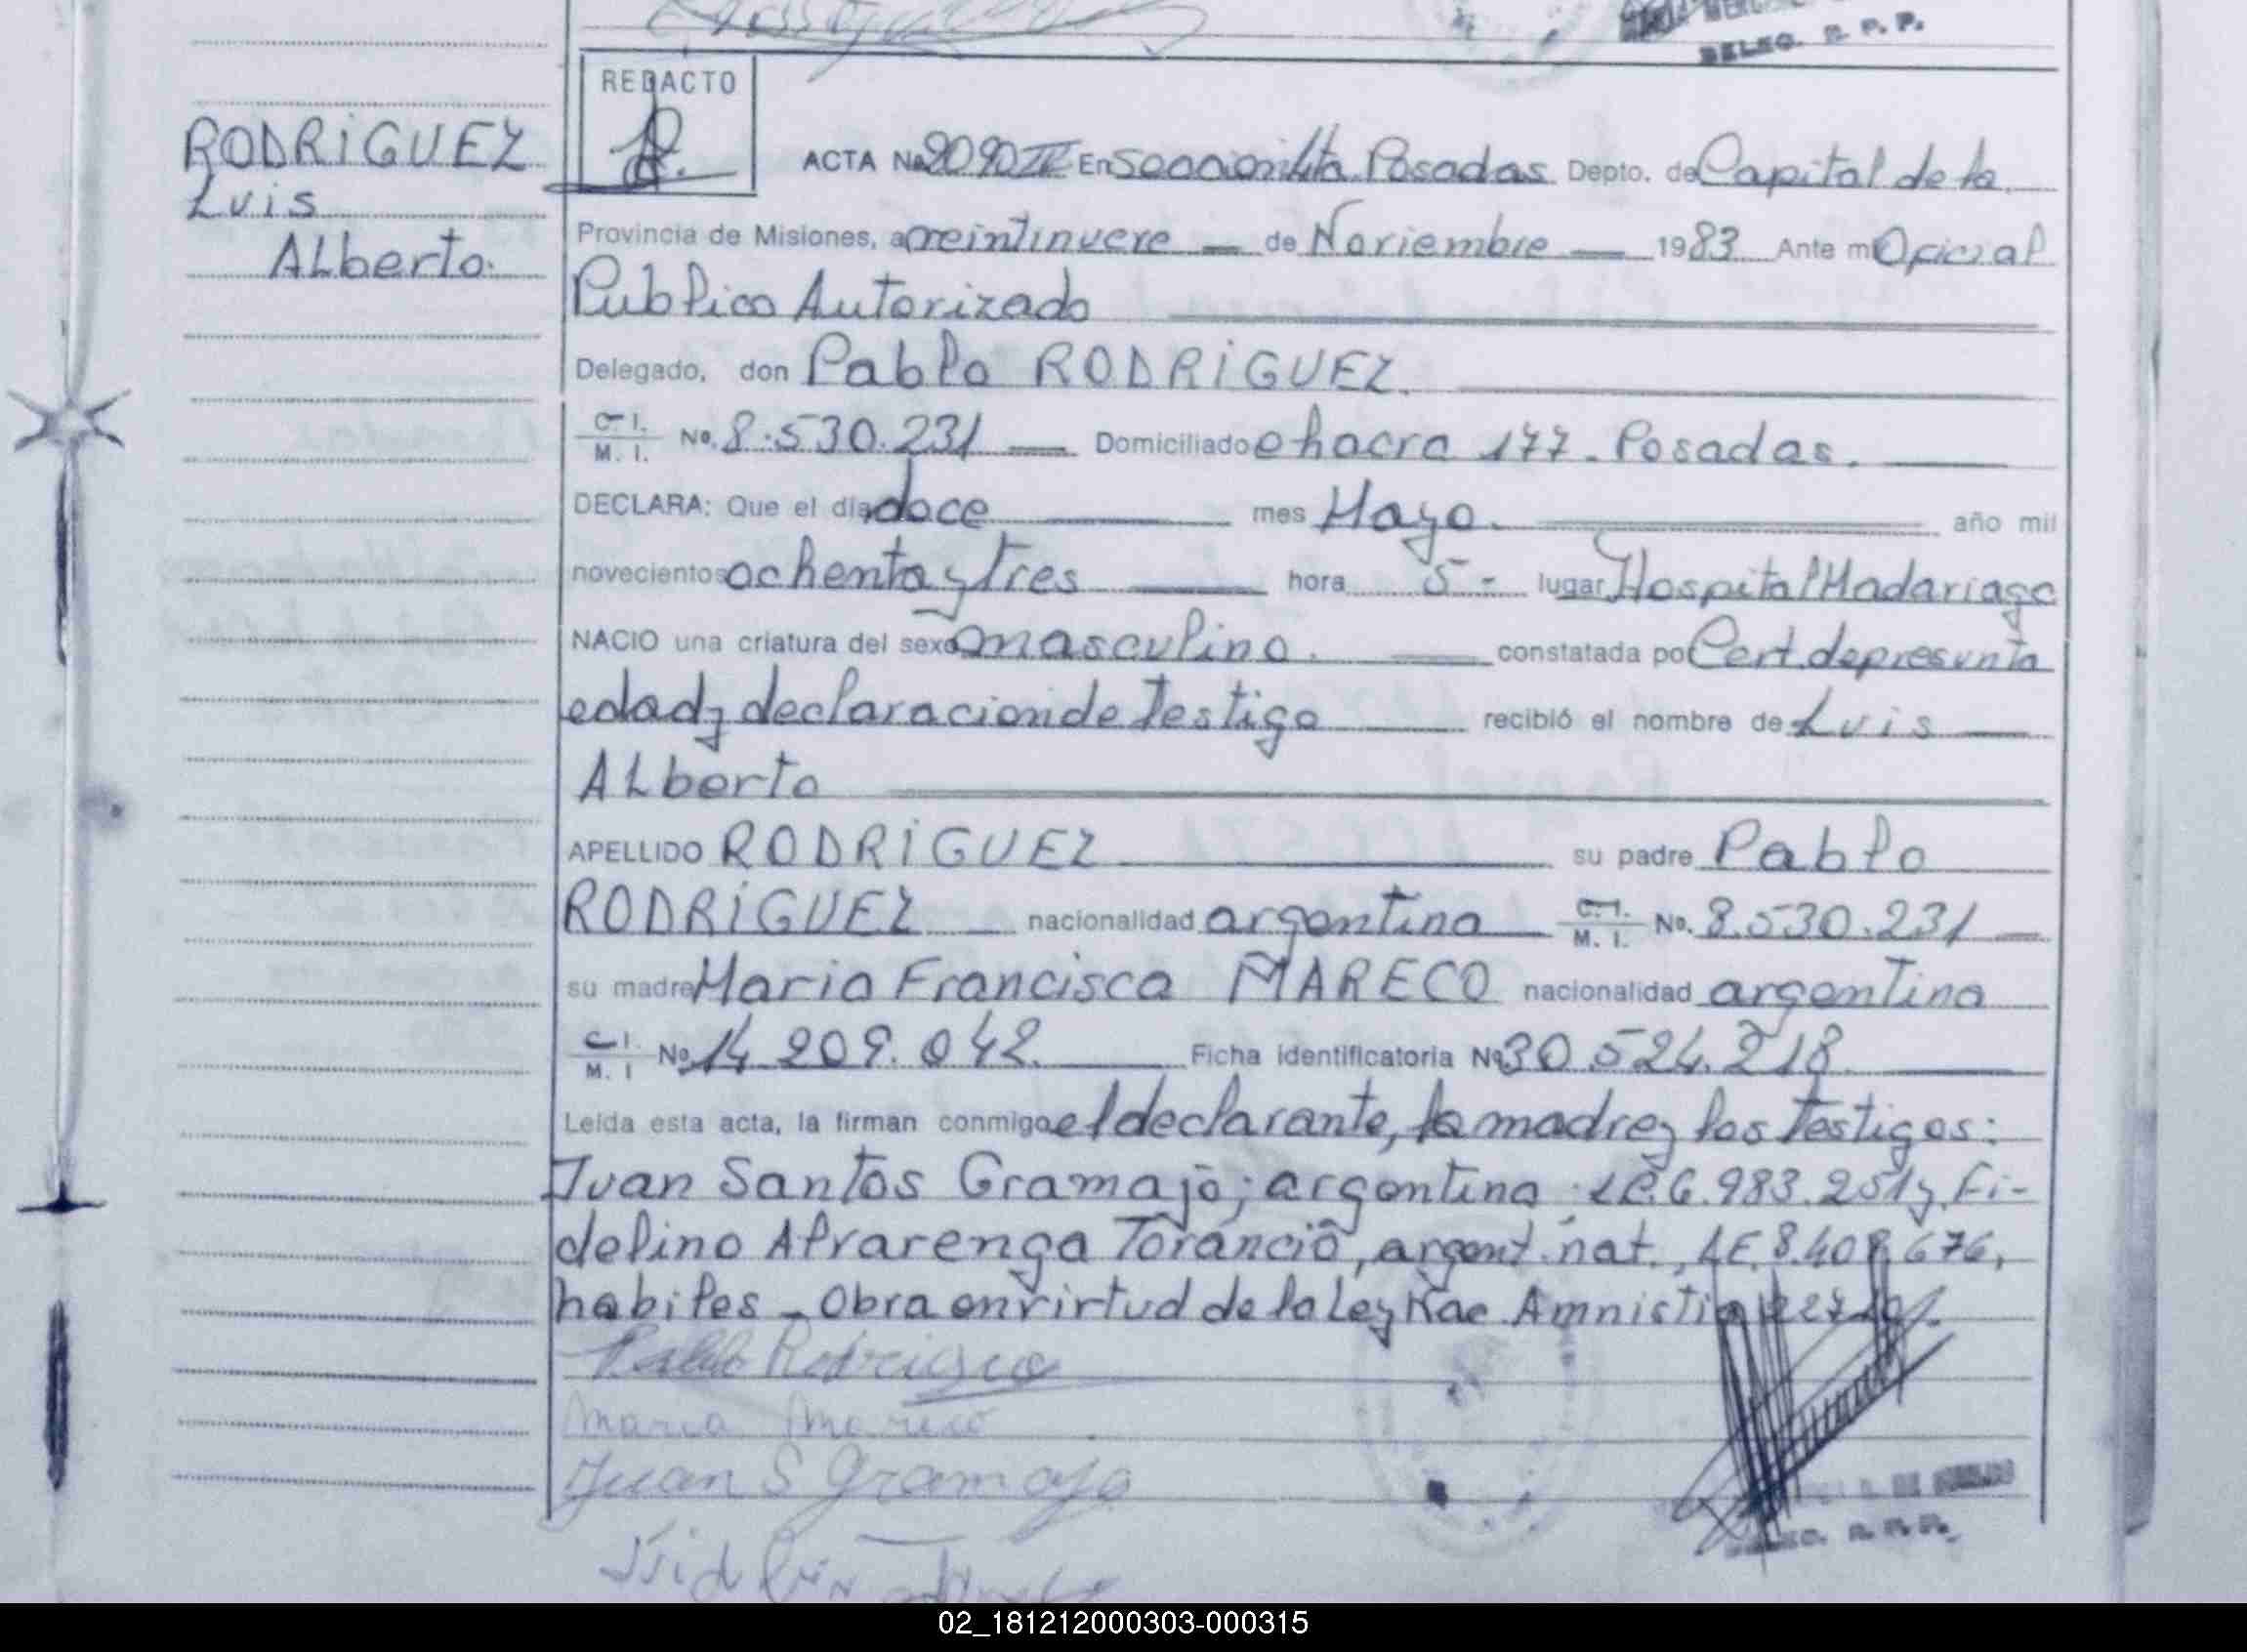 DELEG. R. P. P.
REDACTO
RODRIGUEZ
Luis
Alberto.
ACTA No 2090 IV En Seccion 4ta. Posadas Depto. de Capital de la
Provincia de Misiones, a veintinueve de Noviembre 1983 Ante mi Oficial
Publico Autorizado
Delegado, don Pablo RODRIGUEZ.
C. I. M. I. No. 8.530.231 Domiciliado chacra 177. Posadas.
DECLARA: Que el día doce mes Mayo. año mil
novecientos ochenta y Tres hora 5- lugar Hospital Madariaga
NACIO una criatura del sexo masculino. constatada por Cert. de presunta
edad y declaracion de Testigo recibió el nombre de Luis
Alberto
APELLIDO RODRIGUEZ su padre Pablo
RODRIGUEZ nacionalidad argentina C. I. M. I. No. 8.530.231
su madre Maria Francisca MARECO nacionalidad argentina
C. I. M. I No. 14 209. 042. Ficha identificatoria No. 30.524.218.
Leída esta acta, la firman conmigo el declarante, la madre y los Testigos:
Juan Santos Gramajo; argentino. LE. 6.983.251 y Fi-
delino Alvarenga Torancio, argent. nat., LE. 8.408.676,
habiles - Obra en virtud de la Ley Nac. Amnistia
Pablo Rodriguez
Maria Mareco
Juan S Gramajo
02_181212000303-000315